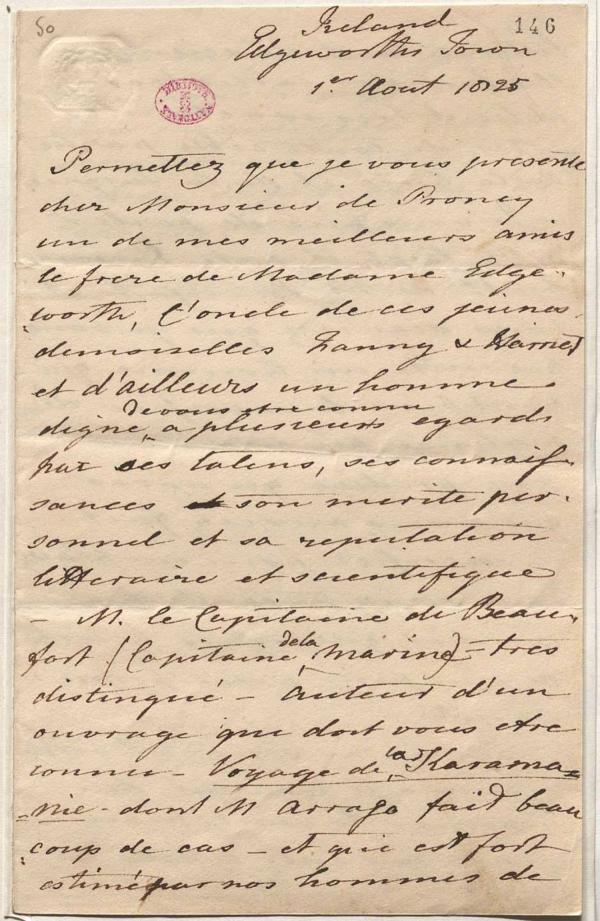 50
146
Ireland
Edgeworths Town
1er Aout 1825
Permettez que je vous presente
cher Monsieur de Proney
un de mes meilleurs amis
le frere de Madame Edge-
worth, l'oncle de ces jeunes
demoiselles Fanny & Harriet
et d'ailleurs un homme
de vous etre connu
digne a plusieurs egards
par ses talens, ses connais-
sances son merite per-
sonnel et sa reputation
litteraire et scientifique
- M. le Capitaine de Beau-
fort (Capitaine de la marine) - tres
distingué - auteur d'un
ouvrage qui doit vous etre
connu - Voyage de la Karama-
nie - dont M Arrago fait beau
coup de cas - et qui est fort
estimé par nos hommes de